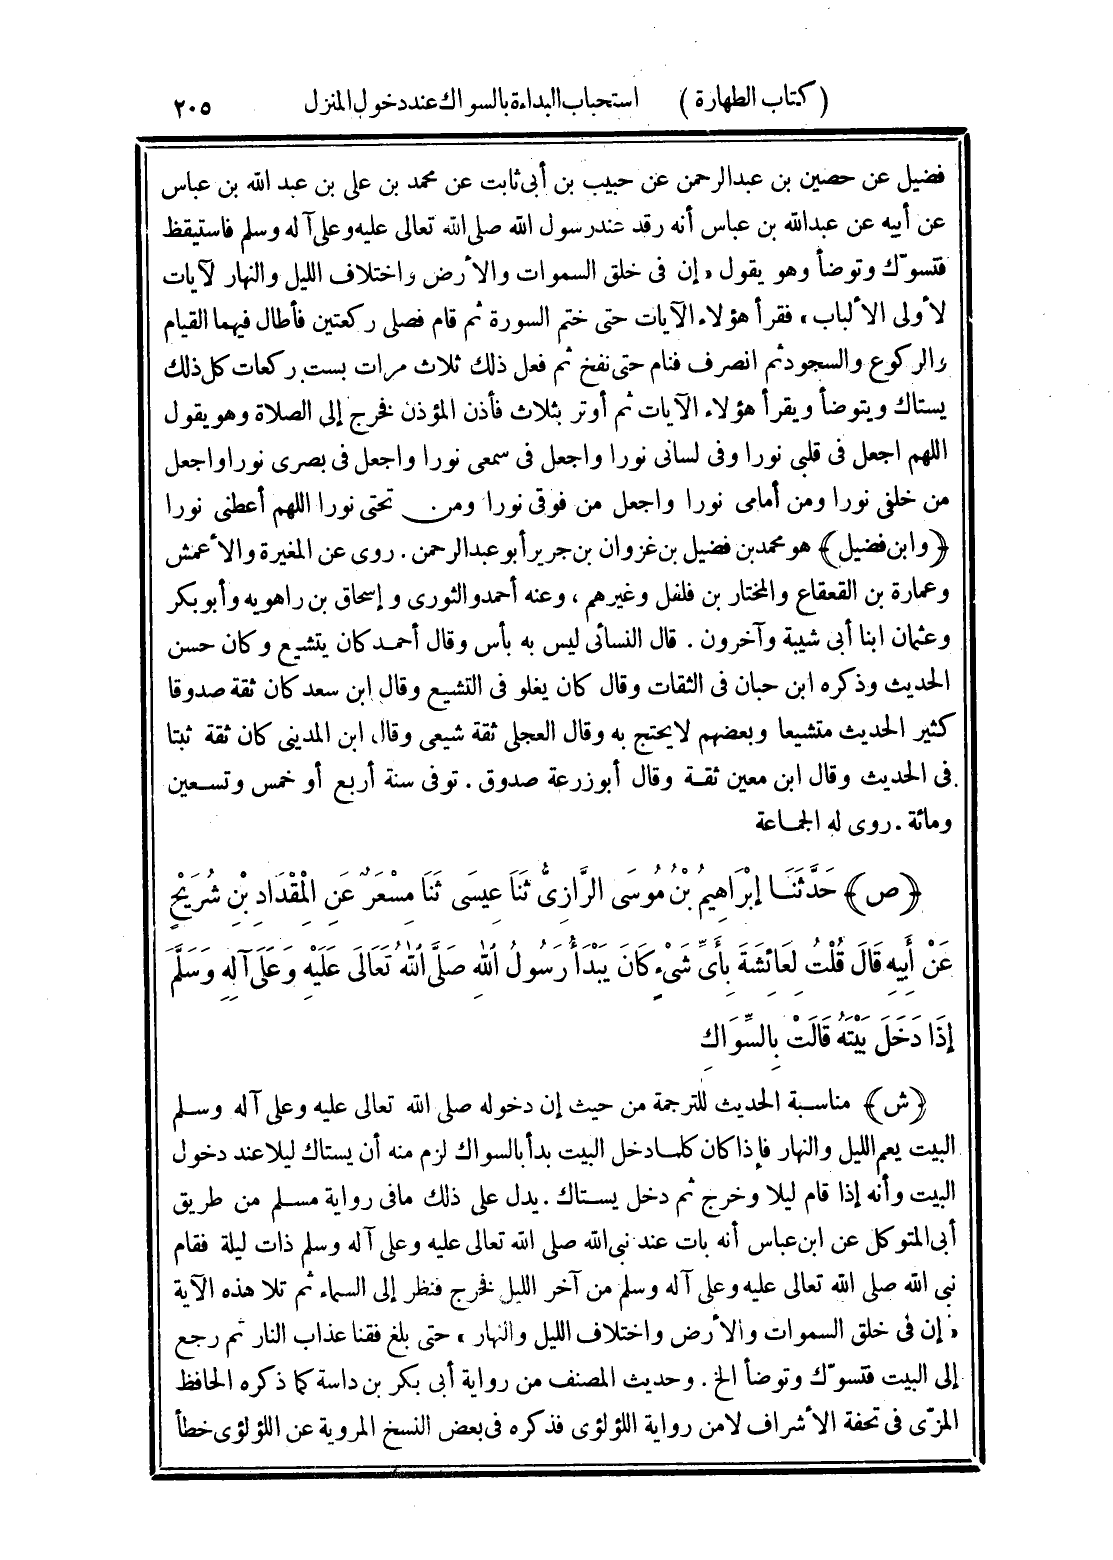 (كتاب الطهارة) استحباب البداءة بالسواك عند دخول المنزل ٢٠٥
فضيل عن حصين بن عبدالرحمن عن حبيب بن أبى ثابت عن محمد بن على بن عبد الله بن عباس
عن أبيه عن عبدالله بن عباس أنه رقد عند رسول الله صلى الله تعالى عليه وعلى آله وسلم فاستيقظ
فتسوّك وتوضأ وهو يقول «إن فى خلق السموات والأرض واختلاف الليل والنهار لآيات
لأولى الألباب» فقرأ هؤلاء الآيات حتى ختم السورة ثم قام فصلى ركعتين فأطال فيهما القيام
والركوع والسجود ثم انصرف فنام حتى نفخ ثم فعل ذلك ثلاث مرات بست ركعات كل ذلك
يستاك ويتوضأ ويقرأ هؤلاء الآيات ثم أوتر بثلاث فأذن المؤذن فخرج إلى الصلاة وهو يقول
اللهم اجعل فى قلبى نورا وفى لسانى نورا واجعل فى سمعى نورا واجعل فى بصرى نورا واجعل
من خلفى نورا ومن أمامى نورا واجعل من فوقى نورا ومن تحتى نورا اللهم أعطنى نورا
﴿وابن فضيل﴾ هو محمد بن فضيل بن غزوان بن جرير أبو عبدالرحمن. روى عن المغيرة والأعمش
وعمارة بن القعقاع والمختار بن فلفل وغيرهم، وعنه أحمد والثورى وإسحاق بن راهويه وأبوبكر
وعثمان ابنا أبى شيبة وآخرون. قال النسائى ليس به بأس وقال أحمد كان يتشيع وكان حسن
الحديث وذكره ابن حبان فى الثقات وقال كان يغلو فى التشيع وقال ابن سعد كان ثقة صدوقا
كثير الحديث متشيعا وبعضهم لايحتج به وقال العجلى ثقة شيعى وقال ابن المدينى كان ثقة ثبتا
فى الحديث وقال ابن معين ثقة وقال أبوزرعة صدوق. توفى سنة أربع أو خمس وتسعين
ومائة. روى له الجماعة
﴿ص﴾ حَدَّثَنَا إِبْرَاهِيمُ بْنُ مُوسَى الرَّازِىُّ ثَنَا عِيسَى ثَنَا مِسْعَرٌ عَنِ الْمِقْدَادِ بْنِ شُرَيْحٍ
عَنْ أَبِيهِ قَالَ قُلْتُ لِعَائِشَةَ بِأَىِّ شَىْءٍ كَانَ يَبْدَأُ رَسُولُ اللهِ صَلَّى اللهُ تَعَالَى عَلَيْهِ وَعَلَى آلِهِ وَسَلَّمَ
إِذَا دَخَلَ بَيْتَهُ قَالَتْ بِالسِّوَاكِ
﴿ش﴾ مناسبة الحديث للترجمة من حيث إن دخوله صلى الله تعالى عليه وعلى آله وسلم
البيت يعم الليل والنهار فإذا كان كلما دخل البيت بدأ بالسواك لزم منه أن يستاك ليلا عند دخول
البيت وأنه إذا قام ليلا وخرج ثم دخل يستاك. يدل على ذلك مافى رواية مسلم من طريق
أبى المتوكل عن ابن عباس أنه بات عند نبى الله صلى الله تعالى عليه وعلى آله وسلم ذات ليلة فقام
نبى الله صلى الله تعالى عليه وعلى آله وسلم من آخر الليل فخرج فنظر إلى السماء ثم تلا هذه الآية
«إن فى خلق السموات والأرض واختلاف الليل والنهار» حتى بلغ فقنا عذاب النار ثم رجع
إلى البيت فتسوّك وتوضأ الخ. وحديث المصنف من رواية أبى بكر بن داسة كما ذكره الحافظ
المزّى فى تحفة الأشراف لامن رواية اللؤلؤى فذكره فى بعض النسخ المروية عن اللؤلؤى خطأ